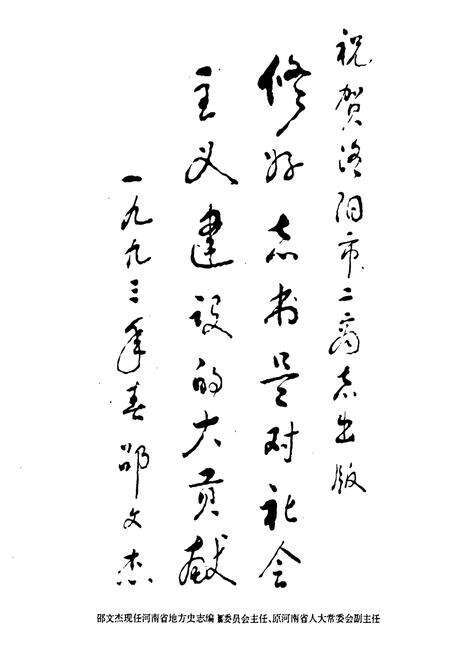 祝贺洛阳市二商志出版
修好志书是对社会
主义建设的大贡献
一九九三年春邵文杰
邵文杰现任河南省地方史志编纂委员会主任、原河南省人大常委会副主任